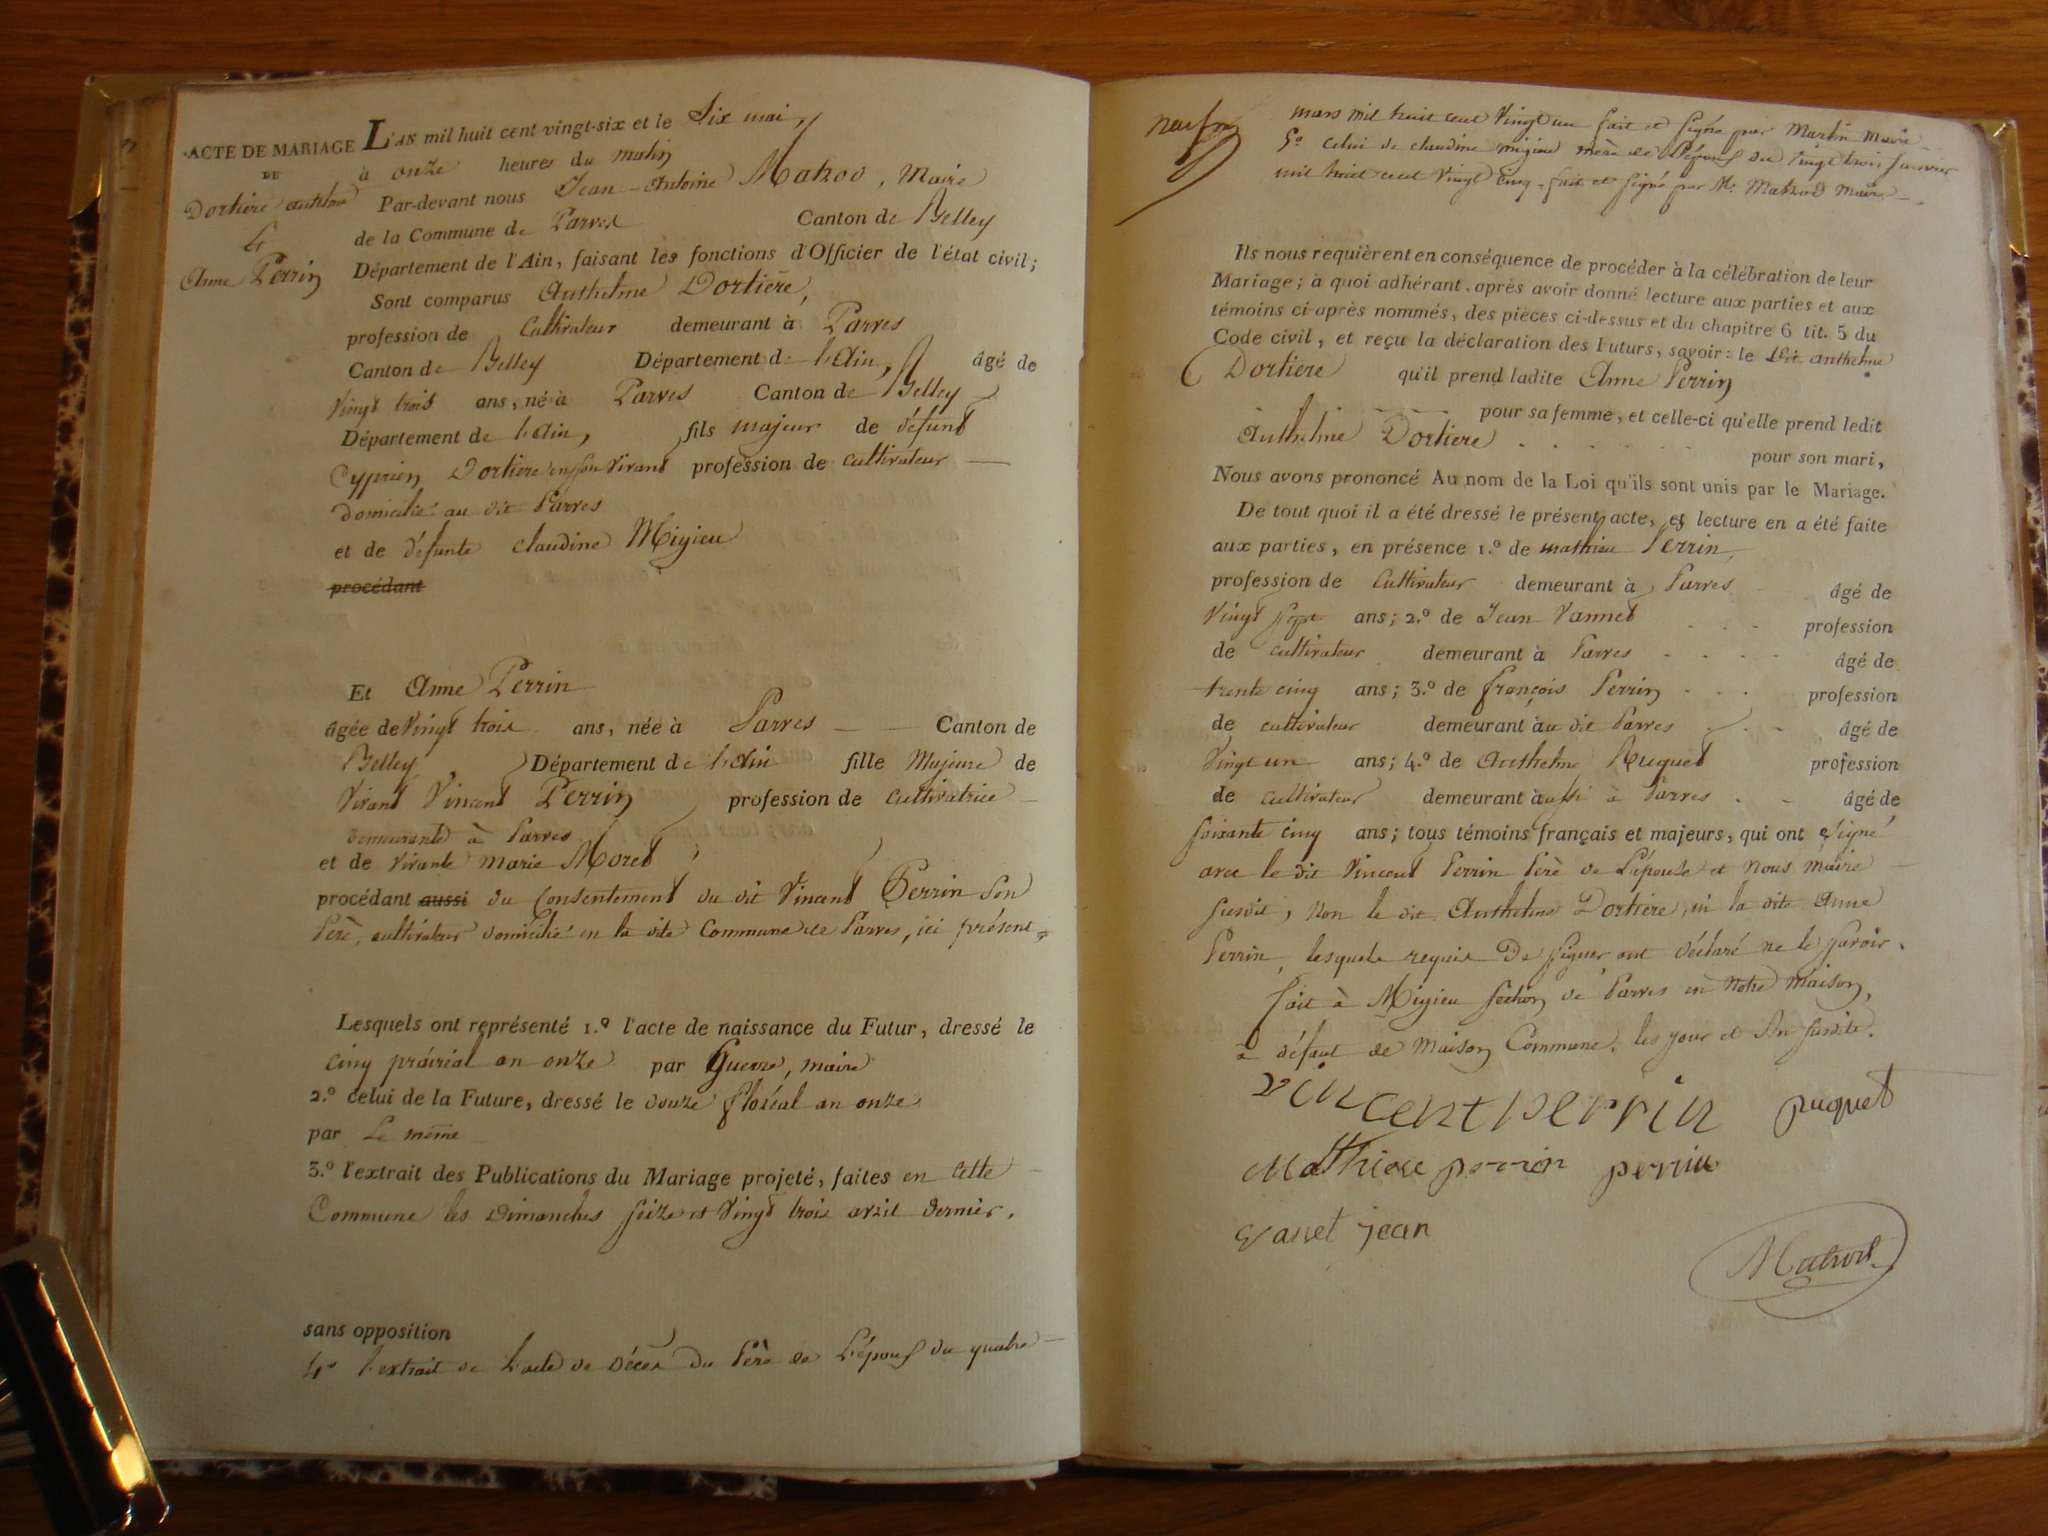 ACTE DE MARIAGE
DE
Dortiere anthelme
&
Anne Perrin
L'AN mil huit cent vingt-six et le Six mai,
à onze heures du matin
Par-devant nous Jean-Antoine Matrod, Maire
de la Commune de Parves Canton de Belley
Département de l'Ain, faisant les fonctions d'Officier de l'état civil;
Sont comparus Anthelme Dortière,
profession de Cultivateur demeurant à Parves
Canton de Belley Département de l'Ain, âgé de
Vingt trois ans, né à Parves Canton de Belley
Département de l'Ain, fils majeur de défunt
Cyprien Dortiere en son vivant profession de cultivateur
domicilié au dit Parves
et de défunte claudine Migieu
procédant
Et Anne Perrin
âgée de Vingt trois ans, née à Parves Canton de
Belley Département de l'Ain fille Majeure de
Vivant Vincent Perrin profession de cultivatrice
demeurante à Parves
et de vivante marie Moret
procédant aussi du Consentement du dit Vincent Perrin son
Père, cultivateur domicilié en la dite Commune de Parves, ici présent
Lesquels ont représenté 1.º l'acte de naissance du Futur, dressé le
cinq prairial an onze par Guerre, maire
2.º celui de la Future, dressé le douze floréal an onze
par Le même
3.º l'extrait des Publications du Mariage projeté, faites en cette
Commune les Dimanches seize et Vingt trois avril dernier.
sans opposition
4º l'extrait de l'acte de décès du Père de l'époux du quatre
mars mil huit cent Vingt un fait et signé par Martin Maire
5º celui de claudine migieu mère de l'époux du vingt trois janvier
mil huit cent Vingt cinq fait et signé par Mr. Matrod Maire
Ils nous requièrent en conséquence de procéder à la célébration de leur
Mariage; à quoi adhérant, après avoir donné lecture aux parties et aux
témoins ci-après nommés, des pièces ci-dessus et du chapitre 6 tit. 5 du
Code civil, et reçu la déclaration des Futurs, savoir: le dit anthelme
Dortiere qu'il prend ladite Anne Perrin
pour sa femme, et celle-ci qu'elle prend ledit
Anthelme Dortiere
pour son mari,
Nous avons prononcé Au nom de la Loi qu'ils sont unis par le Mariage.
De tout quoi il a été dressé le présent acte, et lecture en a été faite
aux parties, en présence 1.º de mathieu Perrin
profession de Cultivateur demeurant à Parves âgé de
Vingt sept ans; 2.º de Jean Vannet profession
de cultivateur demeurant à Parves âgé de
trente cinq ans; 3.º de françois Perrin profession
de cultivateur demeurant à au dit Parves âgé de
Vingt un ans; 4.º de Anthelme Ruguet profession
de cultivateur demeurant à aussi à Parves âgé de
soixante cinq ans; tous témoins français et majeurs, qui ont signé
avec le dit Vincent Perrin Père de l'épouse et Nous Maire
susdit, Non le dit Anthelme Dortiere, ni la dite Anne
Perrin, lesquels requis de signer ont déclaré ne le savoir.
fait à Migieu section de Parves en Notre Maison,
à défaut de Maison Commune, les jour et An susdits.
vincent perrin puguet
Mathieu perrin perrin
vanet jean
Matrod